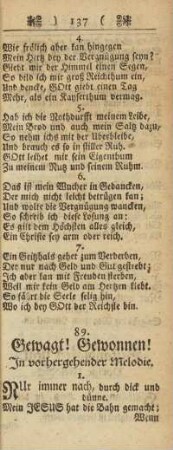 ) 137 (
4.
Wie frölich aber kan hingegen
Mein Hertz bey der Vergnügung seyn?
Giebt mir der Himmel einen Segen,
So bild ich mir groß Reichthum ein,
Und dencke, GOtt giebt einen Tag
Mehr, als ein Kayserthum vermag.
5.
Hab ich die Nothdurfft meinem Leibe,
Mein Brod und auch mein Saltz dazu,
So nehm ich mit der Uberbleibe,
Und brauch es so in stiller Ruh.
GOtt leihet mir sein Eigenthum
Zu meinem Nutz und seinem Ruhm.
6.
Das ist mein Wucher in Gedancken,
Der mich nicht leicht betrügen kan;
Und wolte die Vergnügung wancken,
So schreib ich diese Losung an:
Es gilt dem Höchsten alles gleich,
Ein Christe sey arm oder reich.
7.
Ein Geitzhals gehet zum Verderben,
Der nur nach Geld und Gut gestrebt;
Ich aber kan mit Freuden sterben,
Weil mir kein Geld am Hertzen klebt.
So fährt die Seele selig hin,
Wo ich bey GOtt der Reichste bin.
89.
Gewagt! Gewonnen!
In vorhergehender Melodie.
1.
NUr immer nach, durch dick und
dünne.
Mein JESUS hat die Bahn gemacht;
Wenn